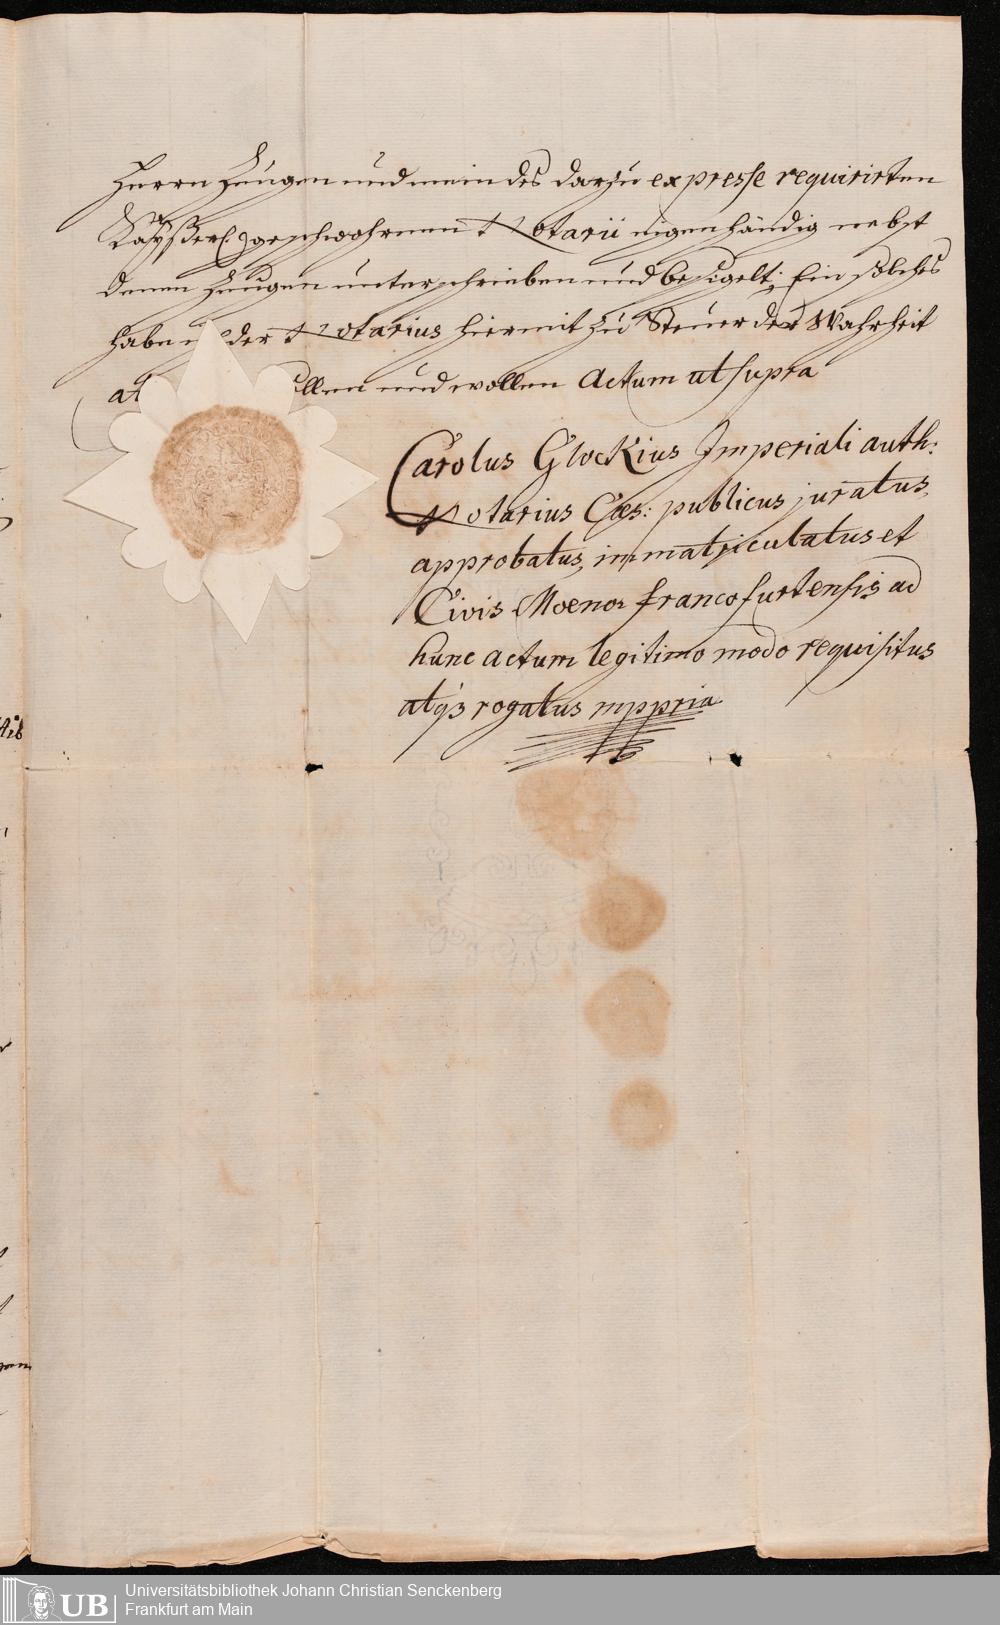 Herrn Zeugen und mein des darzu expresse requirirten
Kayßerl. geschwohrnen Notarii eigenhändig nebst
denen Zeugen unterschrieben und besigelt; Ein solches
habe der Notarius hiermit zu Steuer der Wahrheit
at llen und wollen Actum ut supra
Carolus Glockius Imperiali auth:
Notarius Cæs: publicus juratus,
approbatus, immatriculatus et
Civis Moeno francofurtensis ad
hunc actum legitimo modo requisitus
atq3 rogatus mppria
UB
Universitätsbibliothek Johann Christian Senckenberg
Frankfurt am Main